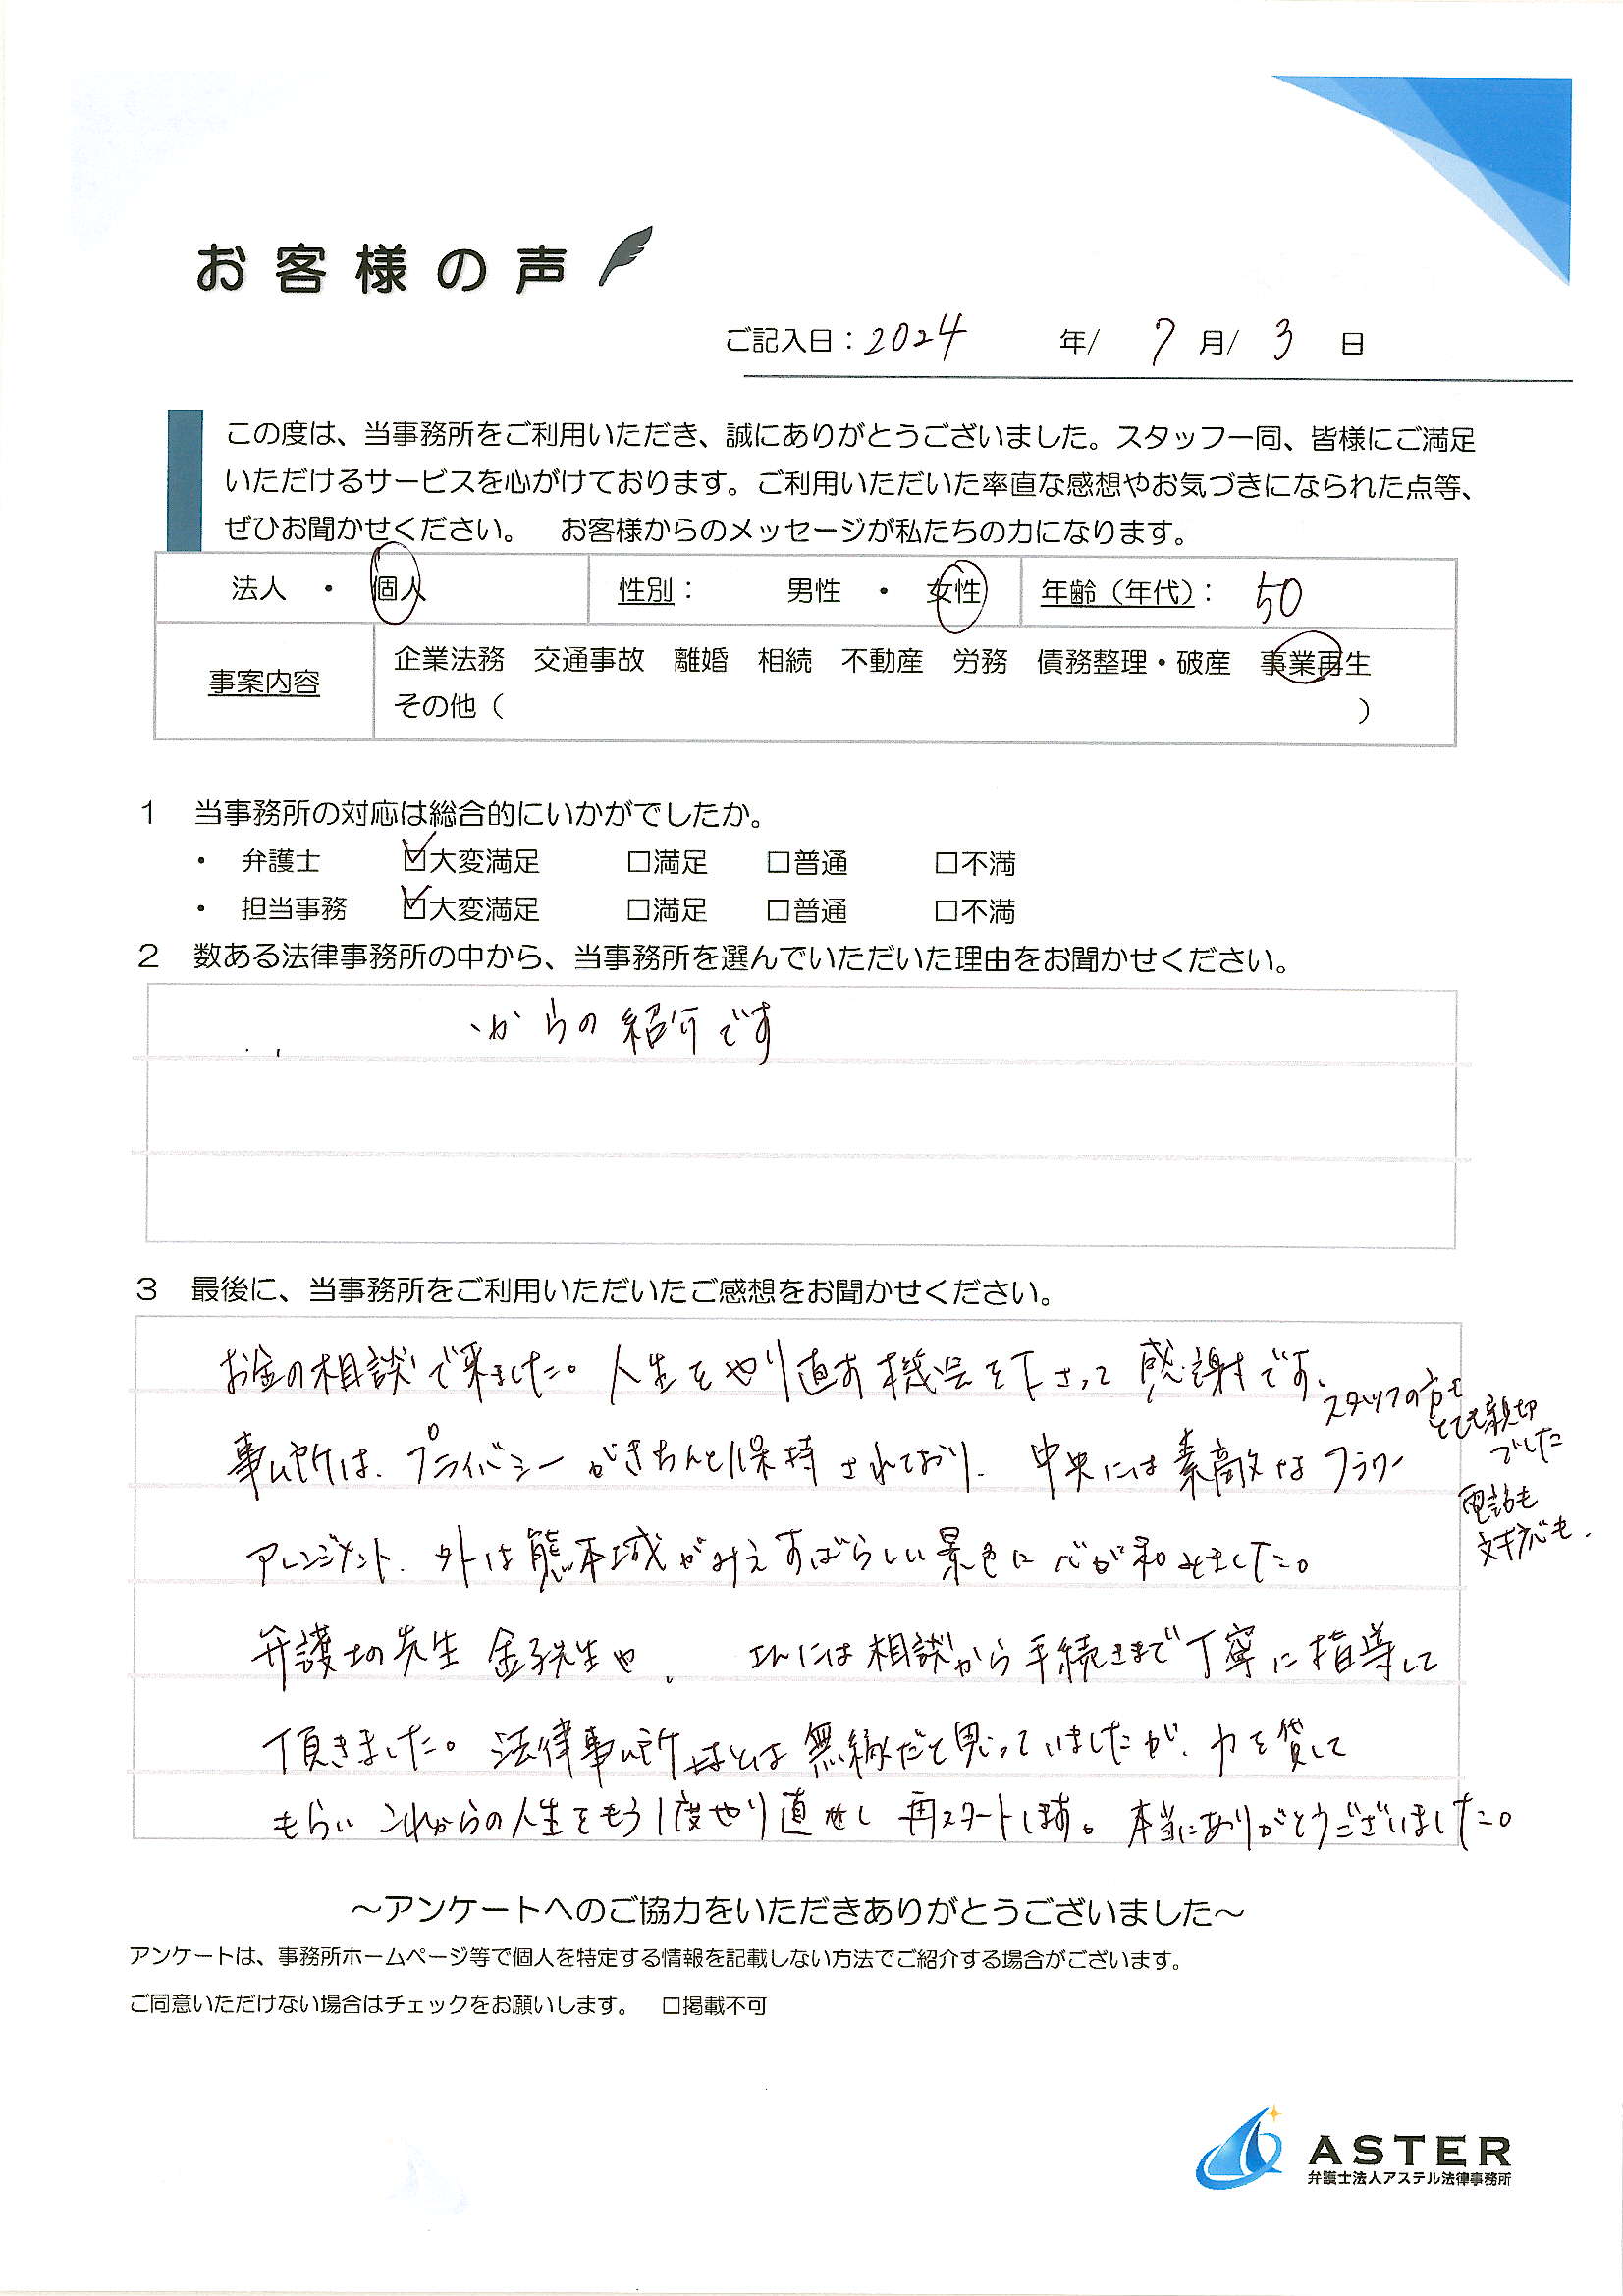 お客様の声
ご記入日：2024 年/ 7 月/ 3 日
この度は、当事務所をご利用いただき、誠にありがとうございました。スタッフ一同、皆様にご満足
いただけるサービスを心がけております。ご利用いただいた率直な感想やお気づきになられた点等、
ぜひお聞かせください。　お客様からのメッセージが私たちの力になります。
法人 ・ 個人 性別： 男性 ・ 女性 年齢（年代）： 50
事案内容 企業法務 交通事故 離婚 相続 不動産 労務 債務整理・破産 事業再生
その他（ ）
1 当事務所の対応は総合的にいかがでしたか。
・ 弁護士 ☑大変満足 □満足 □普通 □不満
・ 担当事務 ☑大変満足 □満足 □普通 □不満
2 数ある法律事務所の中から、当事務所を選んでいただいた理由をお聞かせください。
からの紹介です
3 最後に、当事務所をご利用いただいたご感想をお聞かせください。
お金の相談で来ました。人生をやり直す機会を下さって感謝です。
スタッフの方も
とても親切
でした
電話も
対応も.
事ム所は、プライバシーがきちんと保持されており、中央には素敵なフラワー
アレンジメント、外は熊本城がみえすばらしい景色に心が和みました。
弁護士の先生 金子先生や、 さんには相談から手続きまで丁寧に指導して
頂きました。法律事ム所とは無縁だと思っていましたが、力を貸して
もらい これからの人生をもう1度やり直し 再スタートします。本当にありがとうございました。
～アンケートへのご協力をいただきありがとうございました～
アンケートは、事務所ホームページ等で個人を特定する情報を記載しない方法でご紹介する場合がございます。
ご同意いただけない場合はチェックをお願いします。 □掲載不可
ASTER
弁護士法人アステル法律事務所